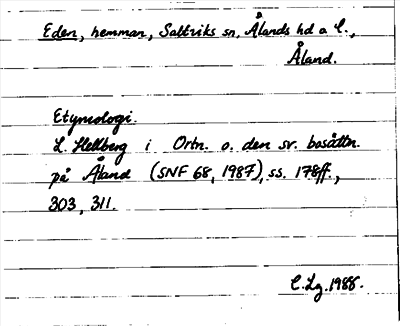 Eden, hemman, Saltviks sn, Ålands hd o l.,
Åland.
Etymologi.
L. Hellberg i Ortn. o. den sv. bosättn.
på Åland (SNF 68, 1987), ss. 178ff.,
303, 311.
C.Lg. 1988.